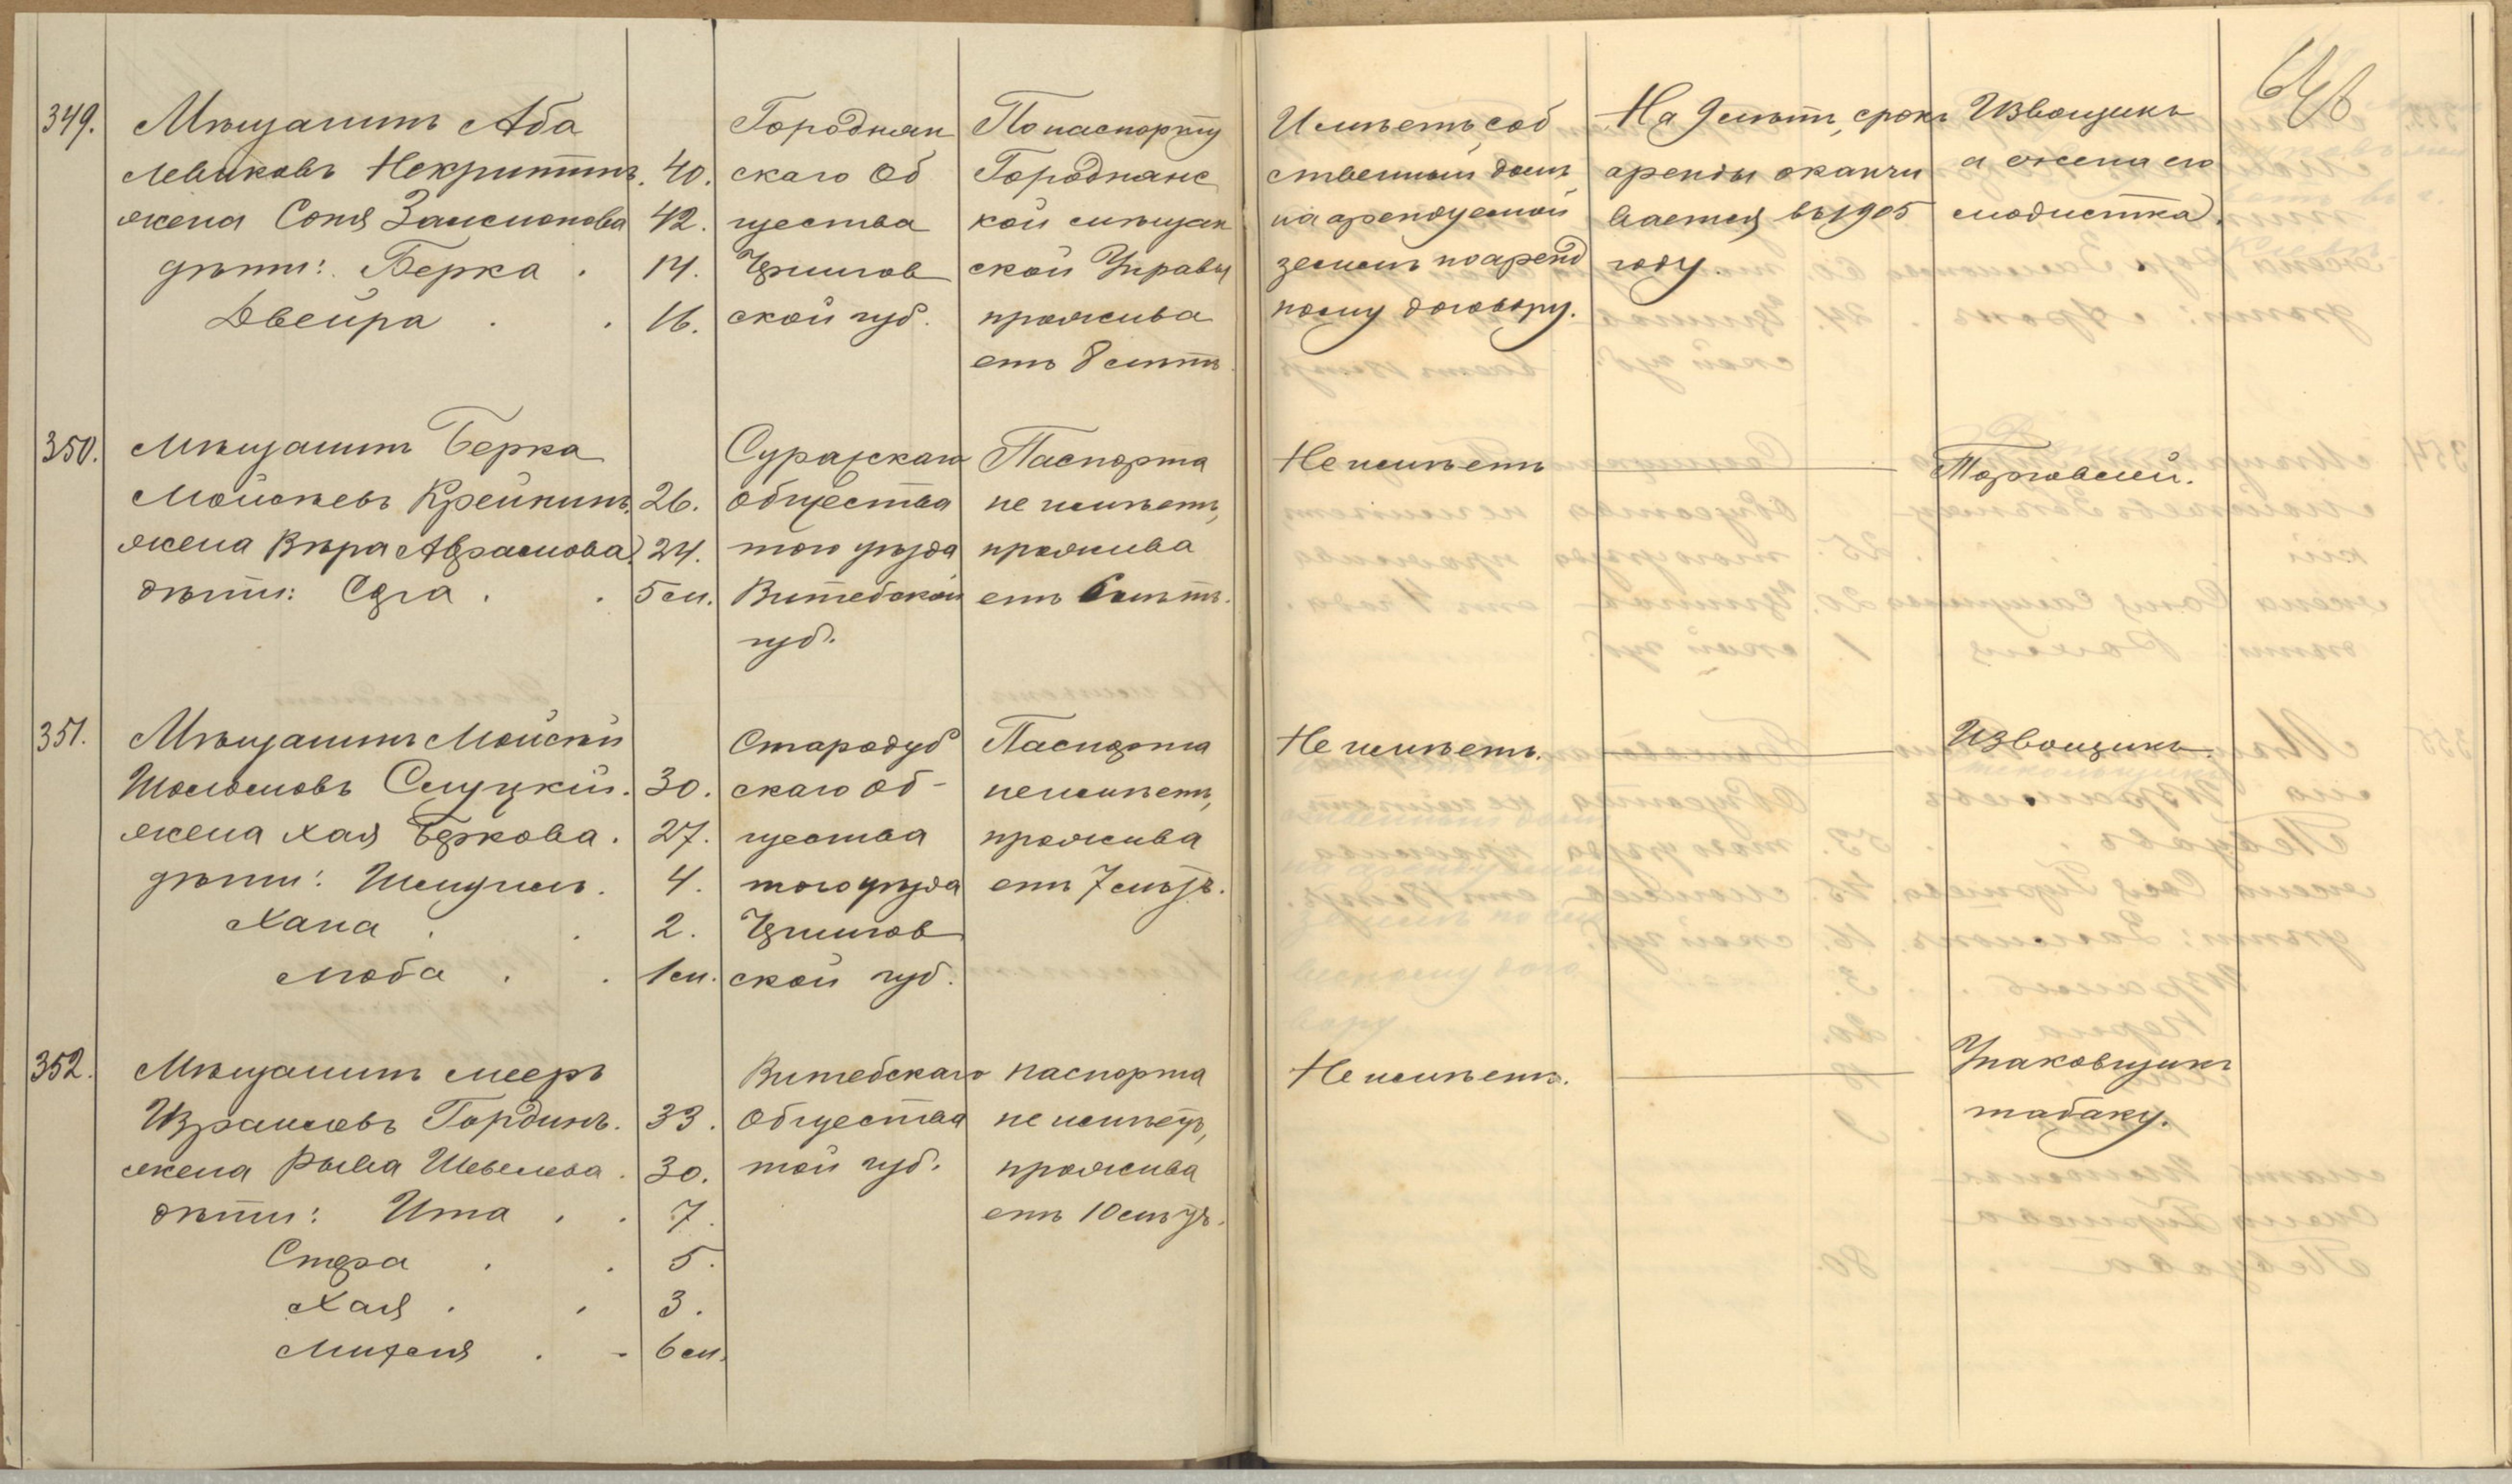 646
349.
Мѣщанинъ Аба
Левиковъ Некритинъ. 40.
жена Соня Залмонова 42.
дѣти: Берка . 14.
Двейра . . 16.
Городнян
скаго Об
щества
Чернигов
ской губ.
По паспорту
Городнянс
кой мѣщан
ской Управы
прожива
етъ 8 лѣтъ
Имѣетъ соб
ственный домъ
на арендуемой
землѣ по аренд
ному договору.
На 9 лѣтъ, срокъ
аренды оканчи
вается въ 1905
году.
Извощикъ
а жена его
модистка.
350.
Мѣщанинъ Берка
Мойсѣевъ Крейнинъ. 26.
жена Вѣра Абрамова. 24.
дѣти: Сара . . 5 м.
Суражскаго
общества
того уѣзда
Витебской
губ.
Паспорта
не имѣетъ,
прожива
етъ 6 лѣтъ.
Не имѣетъ
Торговлей.
351.
Мѣщанинъ Мойсѣй
Шоломовъ Слуцкій. 30.
жена Хая Беркова. 27.
дѣти: Шмуилъ. 4.
Хана . . 2.
Люба . . 1 м.
Стародуб
скаго об-
щества
того уѣзда
Чернигов
ской губ.
Паспорта
не имѣетъ,
прожива
етъ 7 мѣс.
Не имѣетъ.
Извощикъ.
352.
Мѣщанинъ Мееръ
Израилевъ Гординъ. 33.
жена Рыва Шевелева. 30.
дѣти: Ита . . 7.
Стера . . 5.
Хая . . 3.
6 м.
Витебскаго
Общества
той губ.
паспорта
не имѣетъ,
прожива
Не имѣетъ.
Упаковщикъ
табаку.